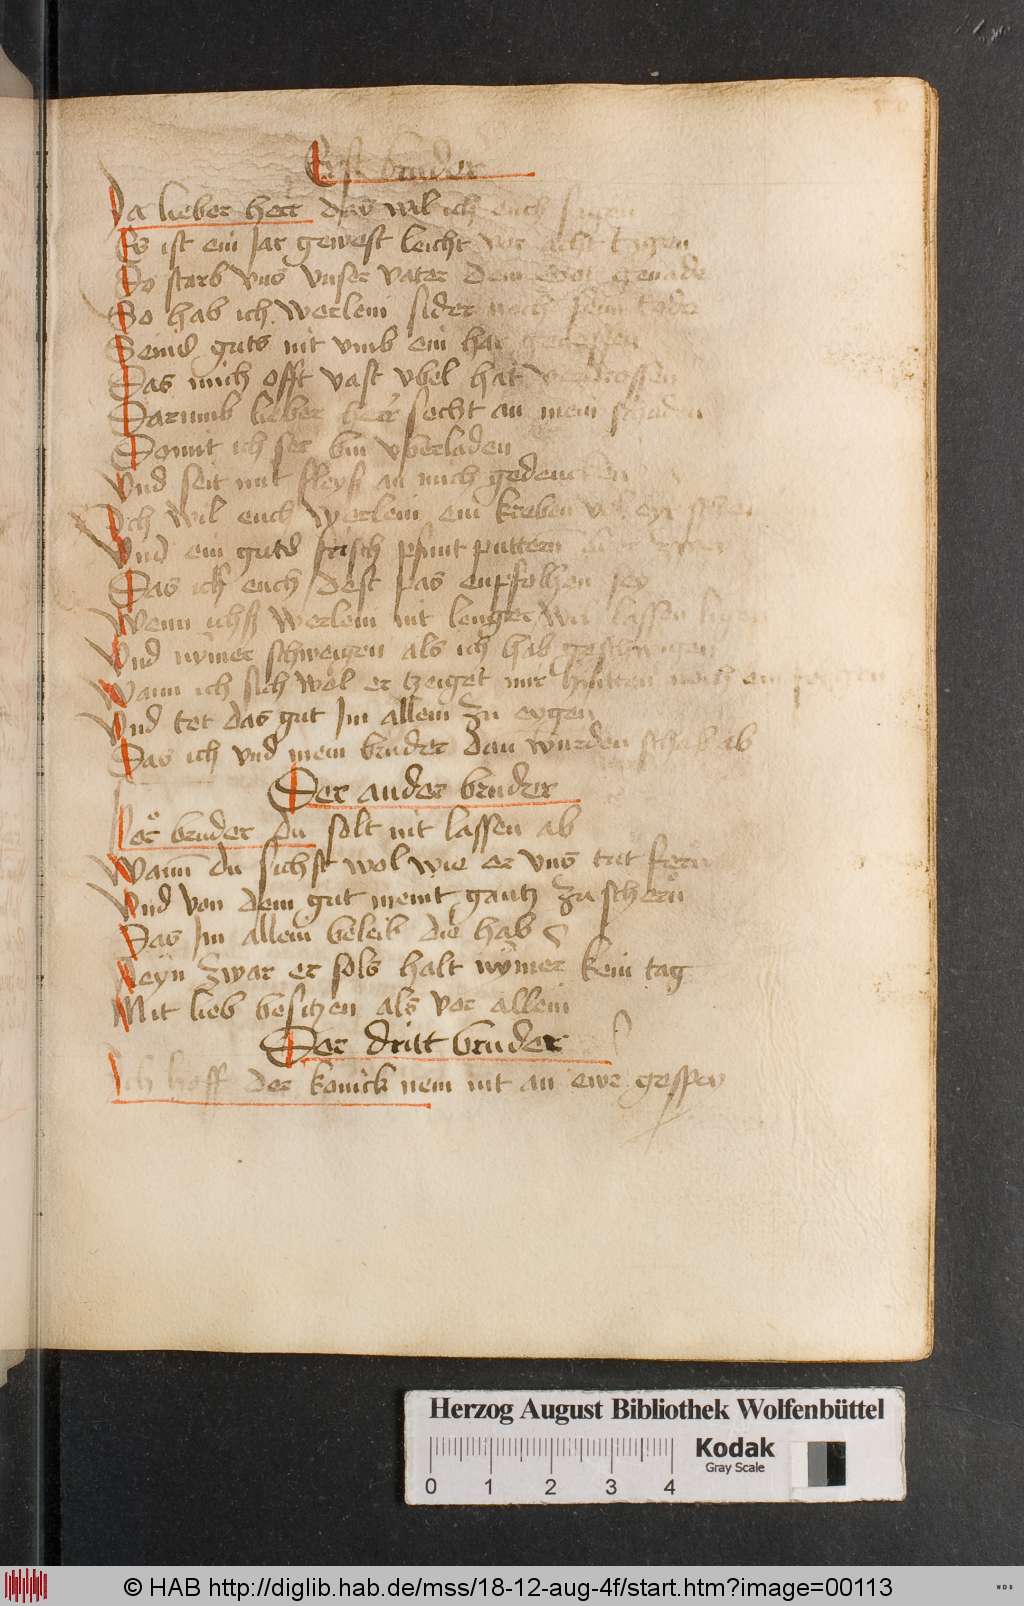 Erst bruder
Ja lieber herr das wil ich euch sagen
Es ist ein Jar gewest leicht vor acht tzagen
Do starb vns vnser vater dem Got genade
So hab ich werlein sider noch seim tode
Seind guts nit vmb ein har genossen
Das mich offt vast vbel hat verdrossen
Darumb lieber herr secht an mein schaden
Domit ich ser bin vberladen
Vnd seit mit fleyß an mich gedencken
Ich wil euch werlein ein kreben vol eyr
Vnd ein guts frisch pfunt puttern
Das ich euch dest pas enpfolhen sey
Wenn ichß werlein nit lenger wil lassen ligen
Vnd nymer schweigen als ich hab geschwigen
Wann ich sich wol er tzeiget mir hintten noch ein feygen
Vnd tet das gut Im allein zu eygen
Das ich vnd mein bruder dan wurden schab ab
Der ander bruder
bruder du solt nit lassen ab
Wann du sichst wol wie er vns tut fern
Vnd von dem gut meint gantz zu schern
Das Im allein beleib die hab
Neyn zwar er sols halt nymer kein tag
Mit lieb besitzen als vor allein
Der dritt bruder
Ich hoff der konick nem nit an ewr gesper
Herzog August Bibliothek Wolfenbüttel
0 1 2 3 4
Kodak
Gray Scale
© HAB http://diglib.hab.de/mss/18-12-aug-4f/start.htm?image=00113